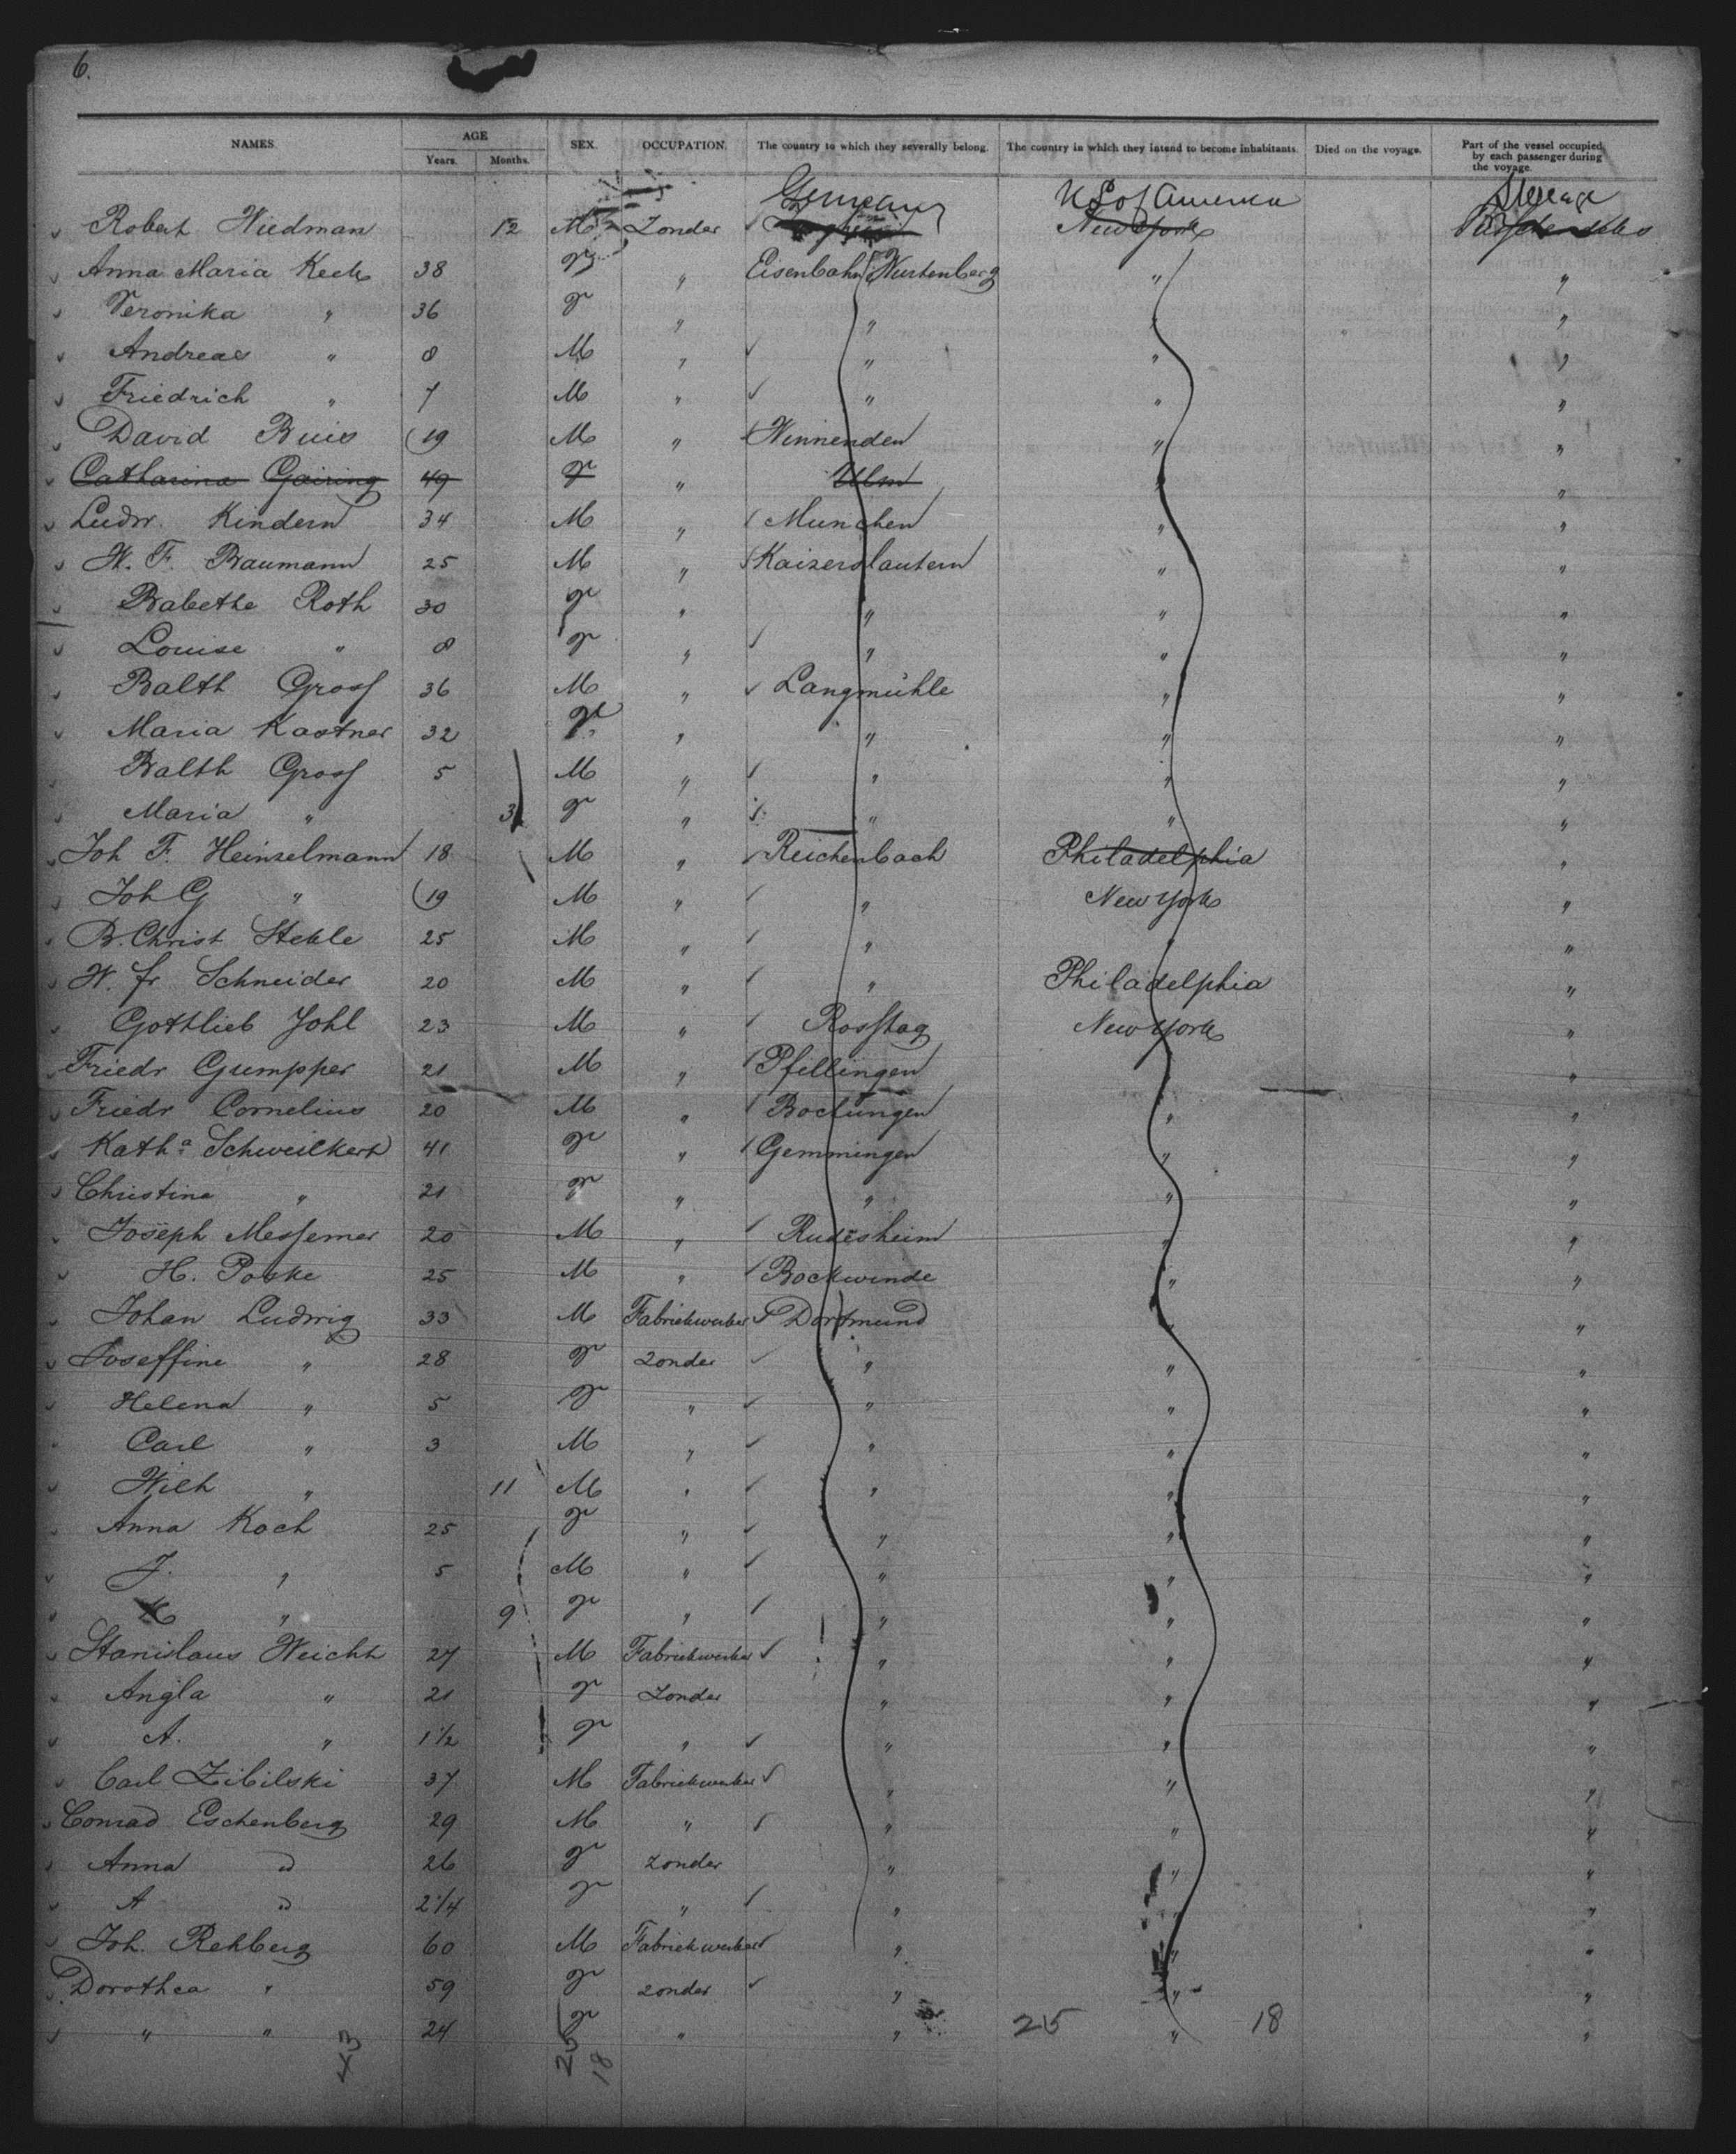 6.
NAMES. AGE SEX. OCCUPATION. The country to which they severally belong. The country in which they intend to become inhabitants. Died on the voyage. Part of the vessel occupied by each passenger during the voyage.
Years. Months.
Germany U S of America Steerage
Robert Wiedman 12 M Zonder New York
Anna Maria Keck 38 F " Eisenbahn Wurtenberg " "
Veronika " 36 F " " " "
Andreas " 8 M " " " "
Friedrich " 7 M " " " "
David Buis 19 M " Winnenden " "
Catharina Gairing 49 F " Ulm " "
Ludw. Kindern 34 M " Munchen " "
W. F. Baumann 25 M " Kaizerslautern " "
Babethe Roth 30 F " " " "
Louise " 8 F " " " "
Balth Gross 36 M " Langmühle " "
Maria Kastner 32 F " " " "
Balth Gross 5 M " " " "
Maria " 3 F " " " "
Joh F. Heinzelmann 18 M " Reichenbach Philadelphia "
Joh G " 19 M " " New York "
B. Christ Stehle 25 M " " " "
W. fr Schneider 20 M " " Philadelphia "
Gottlieb Johl 23 M " Rosstag New York "
Friedr Gumpper 21 M " Pfellingen " "
Friedr Cornelius 20 M " Bochingen " "
Katha Schweilkert 41 F " Gemmingen " "
Christine " 21 F " " " "
Joseph Messemer 20 M " Rudesheim " "
H. Poske 25 M " Bockwinde " "
Johan Ludwig 33 M Fabriekwerker Dortmund " "
Joseffine " 28 F Zonder " " "
Helena " 5 F " " " "
Carl " 3 M " " " "
Wilh " 11 M " " " "
Anna Koch 25 F " " " "
J. " 5 M " " " "
" 9 F " " " "
Stanislaus Weicht 27 M Fabriekwerker " " "
Angla " 21 F Zonder " " "
A. " 1 1/2 F " " " "
Carl Zibilski 37 M Fabriekwerker " " "
Conrad Eschenberg 29 M " " " "
Anna " 26 F Zonder " " "
A " 2 1/4 F " " " "
Joh. Rehberg 60 M Fabriekwerker " " "
Dorothea " 59 F Zonder " " "
" " 24 F " " 25 " 18 "
43 25 18